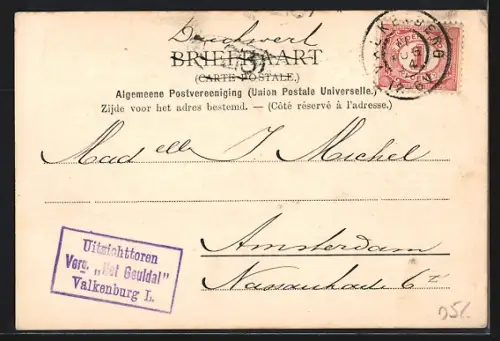 Drukwerk
BRIEFKAART
(CARTE POSTALE.)
Algemeene Postvereeniging (Union Postale Universelle.)
Zijde voor het adres bestemd. — (Côté réservé à l'adresse.)
VALKENBURG
Mad elle J. Michel
Amsterdam
Nassaukade 6
Uitzichttoren
Vereg. „Het Geuldal"
Valkenburg L.